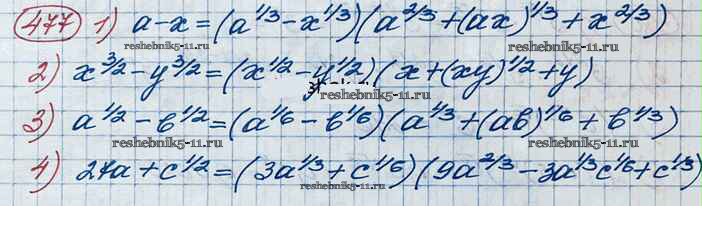 477 1) a-x=(a^1/3-x^1/3)(a^2/3+(ax)^1/3+x^2/3)
reshebnik5-11.ru
2) x^3/2-y^3/2=(x^1/2-y^1/2)(x+(xy)^1/2+y)
reshebnik5-11.ru
3) a^1/2-в^1/2=(a^1/6-в^1/6)(a^1/3+(aв)^1/6+в^1/3)
reshebnik5-11.ru
4) 27a+c^1/2=(3a^1/3+c^1/6)(9a^2/3-3a^1/3c^1/6+c^1/3)
reshebnik5-11.ru reshebnik5-11.ru